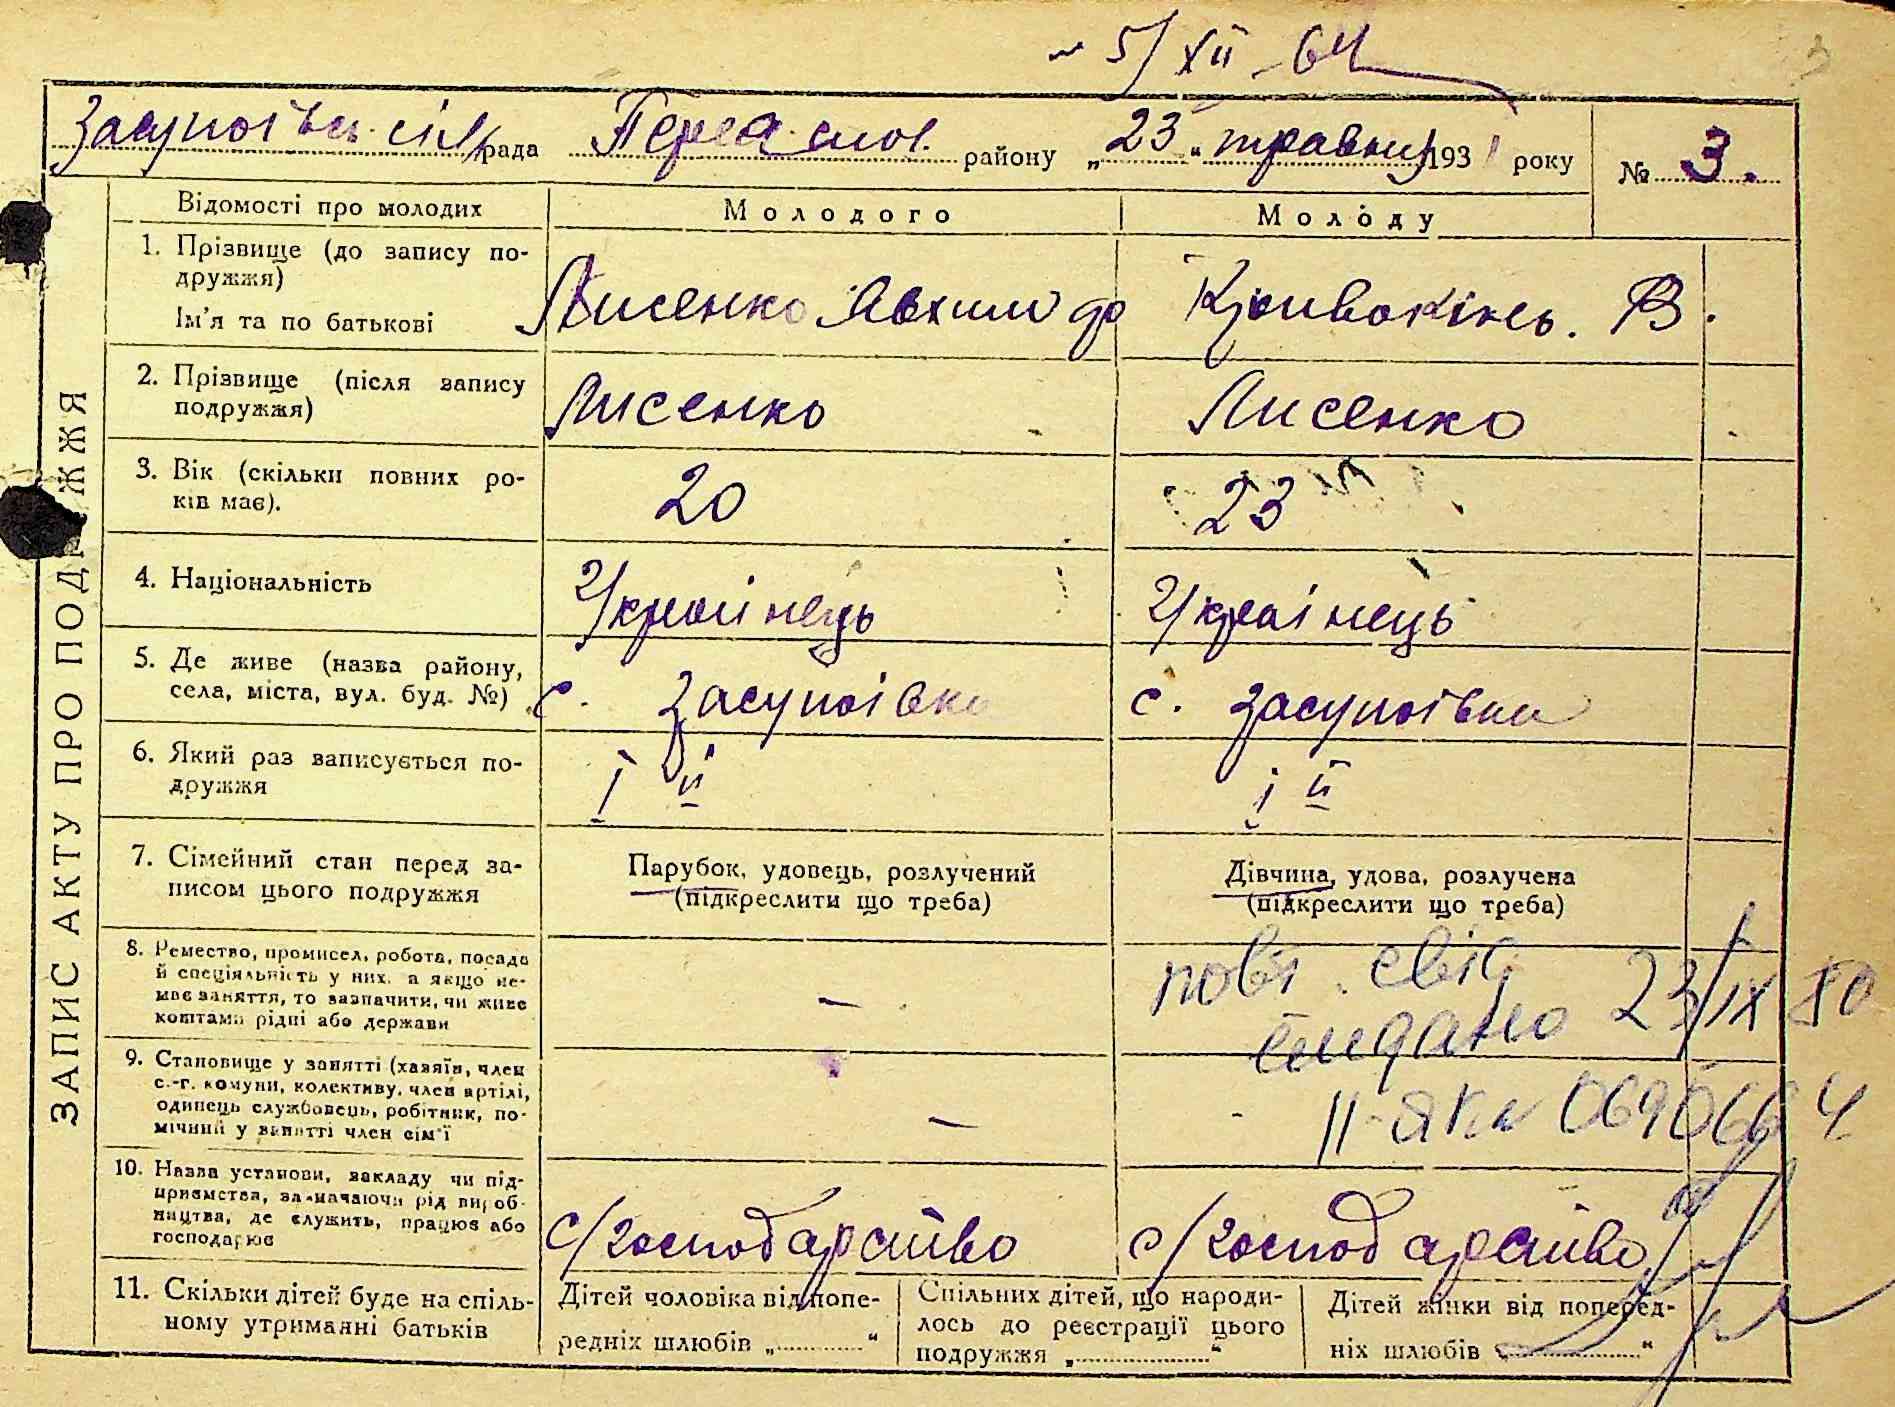 5/XII - 64
Засупоївс. сіль рада Переяслов. району „23“ травня 1931 року № 3.
ЗАПИС АКТУ ПРО ПОДРУЖЖЯ
Відомості про молодих Молодого Молоду
1. Прізвище (до запису по-
дружжя)
Ім'я та по батькові
Лисенко Явхим Кривокінь. В.
2. Прізвище (після запису
подружжя)
Лисенко Лисенко
3. Вік (скільки повних ро-
ків має).
20 23
4. Національність
Українець Українець
5. Де живе (назва району,
села, міста, вул. буд. №)
с. Засупоївка с. Засупоївка
6. Який раз записується по-
дружжя
І й І й
7. Сімейний стан перед за-
писом цього подружжя
Парубок, удовець, розлучений
(підкреслити що треба)
Дівчина, удова, розлучена
(підкреслити що треба)
8. Ремество, промисел, робота, посада
й спеціяльність у них, а якщо не-
має заняття, то зазначити, чи живе
коштами рідні або держави
—
повт. свід
видано 23/IX 80
9. Становище у занятті (хазяїн, член
с.-г. комуни, колективу, член артілі,
одинець службовець, робітник, по-
мічний у занятті член сім'ї
—
II-ЯК № 0690664
10. Назва установи, закладу чи під-
приємства, зазначаючи рід вироб-
ництва, де служить, працює або
господарює
с/господарство с/господарство
11. Скільки дітей буде на спіль-
ному утриманні батьків
Дітей чоловіка від попе-
редніх шлюбів „............“
Спільних дітей, що народи-
лось до реєстрації цього
подружжя „............“
Дітей жінки від поперед-
ніх шлюбів „............“